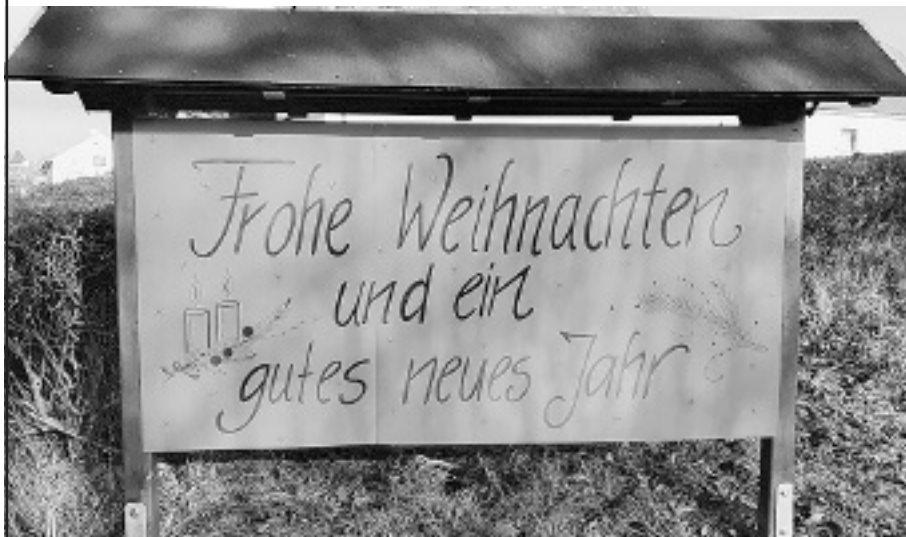 Frohe Weihnachten
und ein
gutes neues Jahr